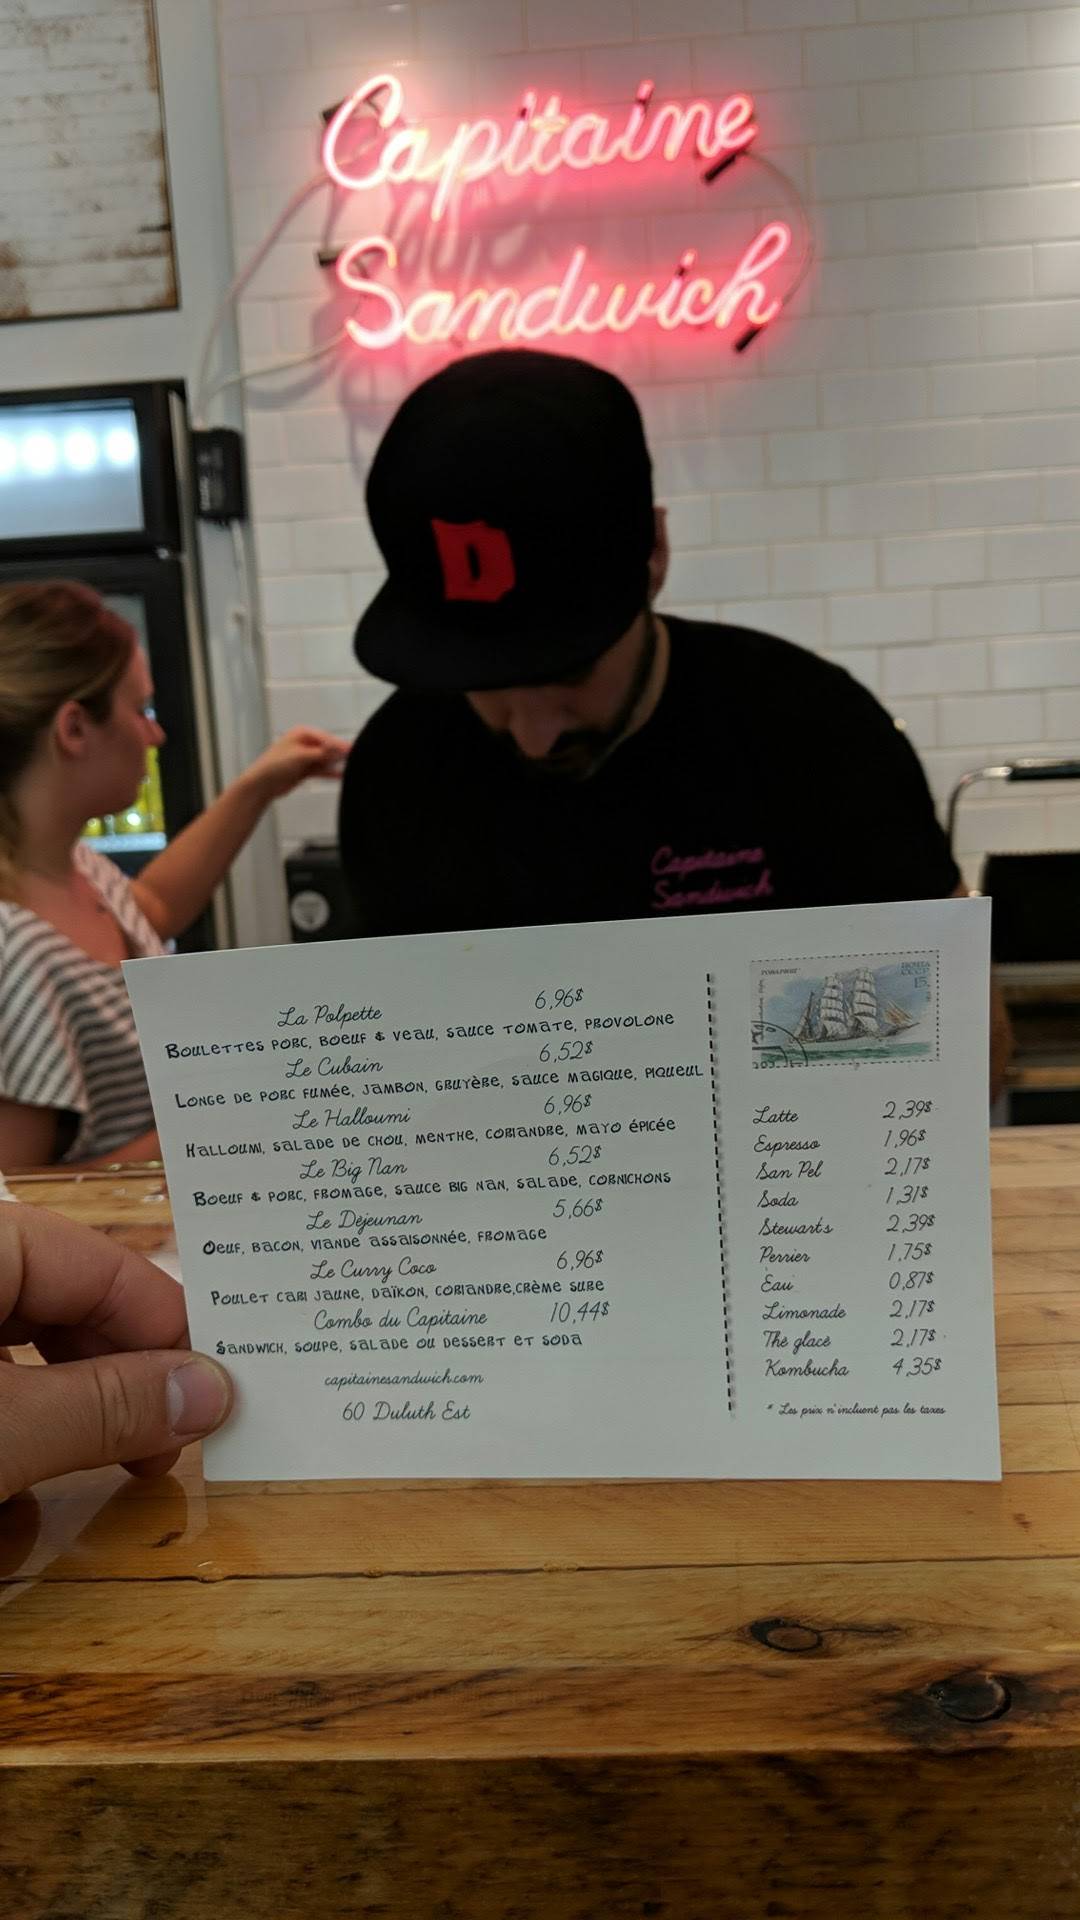 Capitaine
Sandwich
D
Capitaine
Sandwich
La Polpette 6,96$
Boulettes porc, boeuf & veau, sauce tomate, provolone
Le Cubain 6,52$
Longe de porc fumée, jambon, gruyère, sauce magique, piqueul
Le Halloumi 6,96$
Halloumi, salade de chou, menthe, coriandre, mayo épicée
Le Big Nan 6,52$
Boeuf & porc, fromage, sauce big nan, salade, cornichons
Le Déjeunan 5,66$
Oeuf, bacon, viande assaisonnée, fromage
Le Curry Coco 6,96$
Poulet cari jaune, daïkon, coriandre, crème sure
Combo du Capitaine 10,44$
Sandwich, soupe, salade ou dessert et soda
capitainesandwich.com
60 Duluth Est
ПОЧТА
СССР
15
Latte 2,39$
Espresso 1,96$
San Pel 2,17$
Soda 1,31$
Stewarts 2,39$
Perrier 1,75$
Eau 0,87$
Limonade 2,17$
Thé glacé 2,17$
Kombucha 4,35$
* Les prix n'incluent pas les taxes